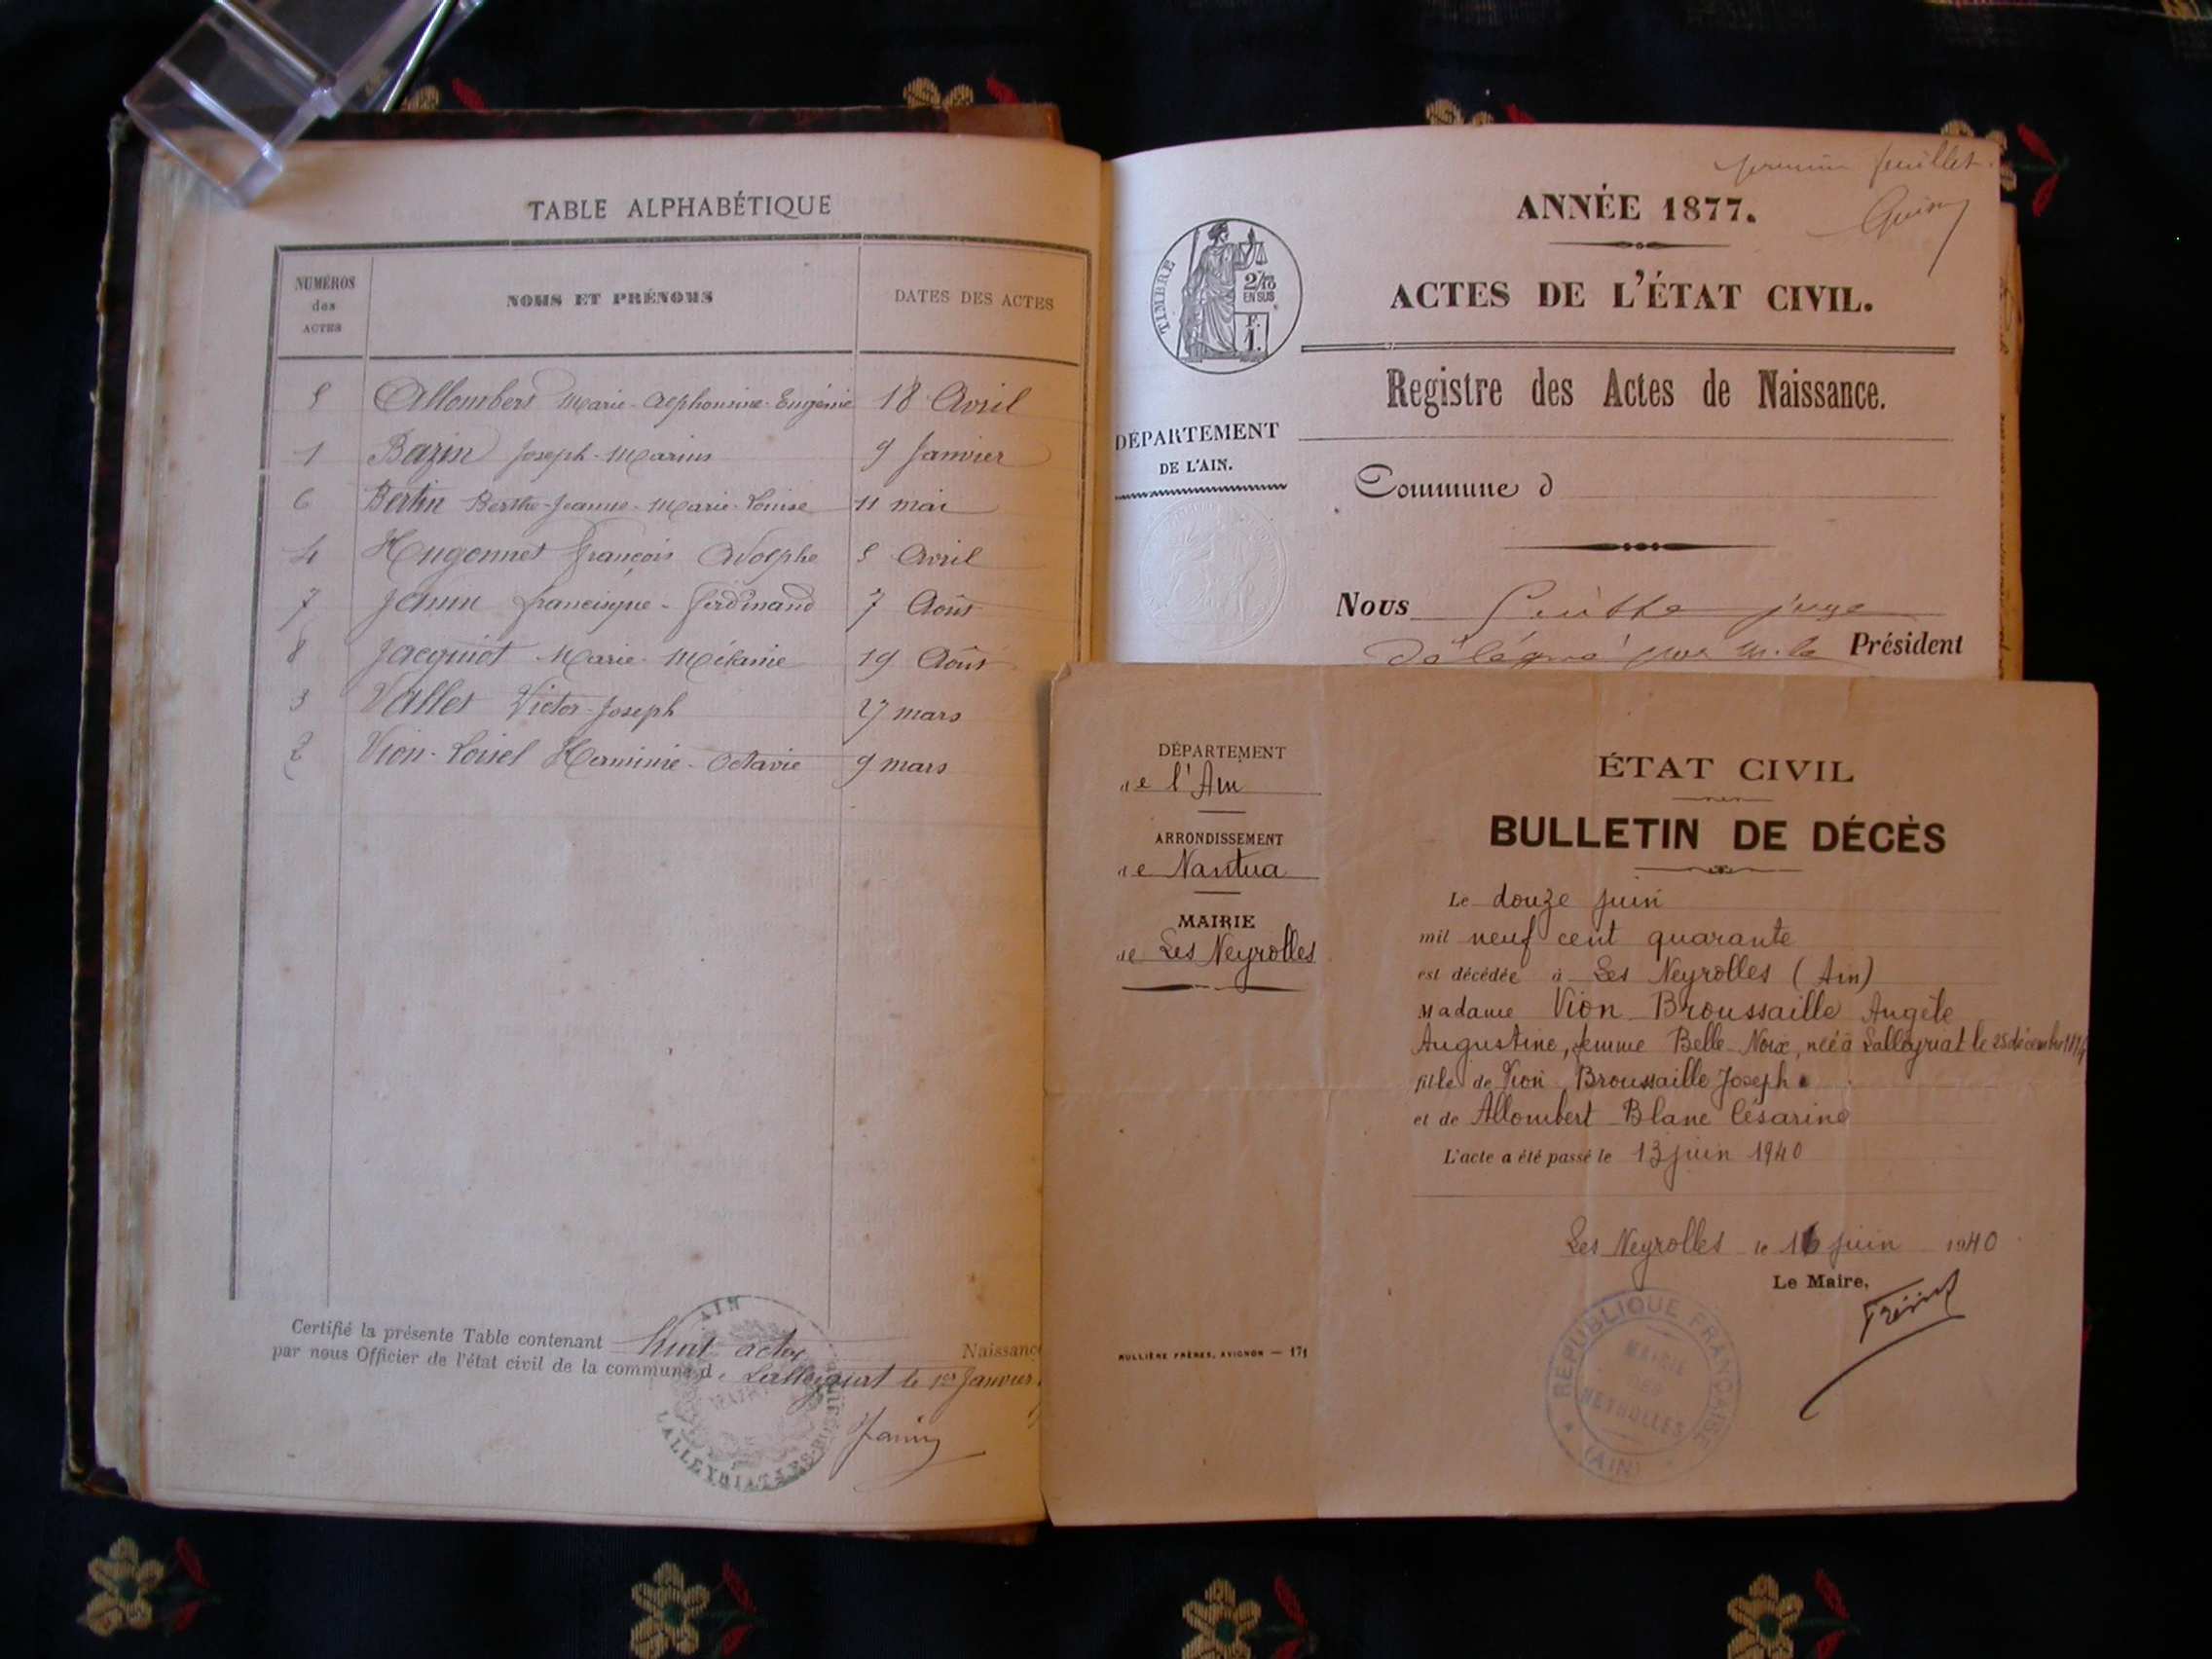 TABLE ALPHABÉTIQUE
NUMÉROS des ACTES
NOMS ET PRÉNOMS
DATES DES ACTES
5 Allombert Marie-Alphonsine-Eugénie 18 Avril
1 Bazin Joseph-Marius 9 Janvier
6 Bertin Berthe-Jeanne-Marie-Louise 11 mai
4 Hugonnet François Adolphe 5 Avril
7 Jenin Francisque-Ferdinand 7 Août
8 Jacquiot Marie-Mélanie 19 Août
3 Vallet Victor-Joseph 27 mars
2 Vion-Loisel Herminie-Octavie 9 mars
Certifié la présente Table contenant huit actes Naissance
par nous Officier de l'état civil de la commune de Lalleyriat le 1er Janvier
AIN
MAIRIE
LALLEYRIAT
premier feuillet.
ANNÉE 1877.
TIMBRE
2/10
EN SUS
F.
1.
ACTES DE L'ÉTAT CIVIL.
Registre des Actes de Naissance.
DÉPARTEMENT
DE L'AIN.
Commune d
Nous juge
délégué par M. le Président
DÉPARTEMENT
de l'Ain
ARRONDISSEMENT
de Nantua
MAIRIE
de Les Neyrolles
RULLIÈRE FRÈRES, AVIGNON — 171
ÉTAT CIVIL
BULLETIN DE DÉCÈS
Le douze juin
mil neuf cent quarante
est décédée à Les Neyrolles (Ain)
Madame Vion Broussaille Angèle
Augustine, femme Belle-Noix, née à Lalleyriat le 25 décembre
fille de Vion Broussaille Joseph
et de Allombert Blanc Césarine
L'acte a été passé le 13 juin 1940
Les Neyrolles le 16 juin 1940
Le Maire,
RÉPUBLIQUE FRANÇAISE
MAIRIE
DES
NEYROLLES
(AIN)